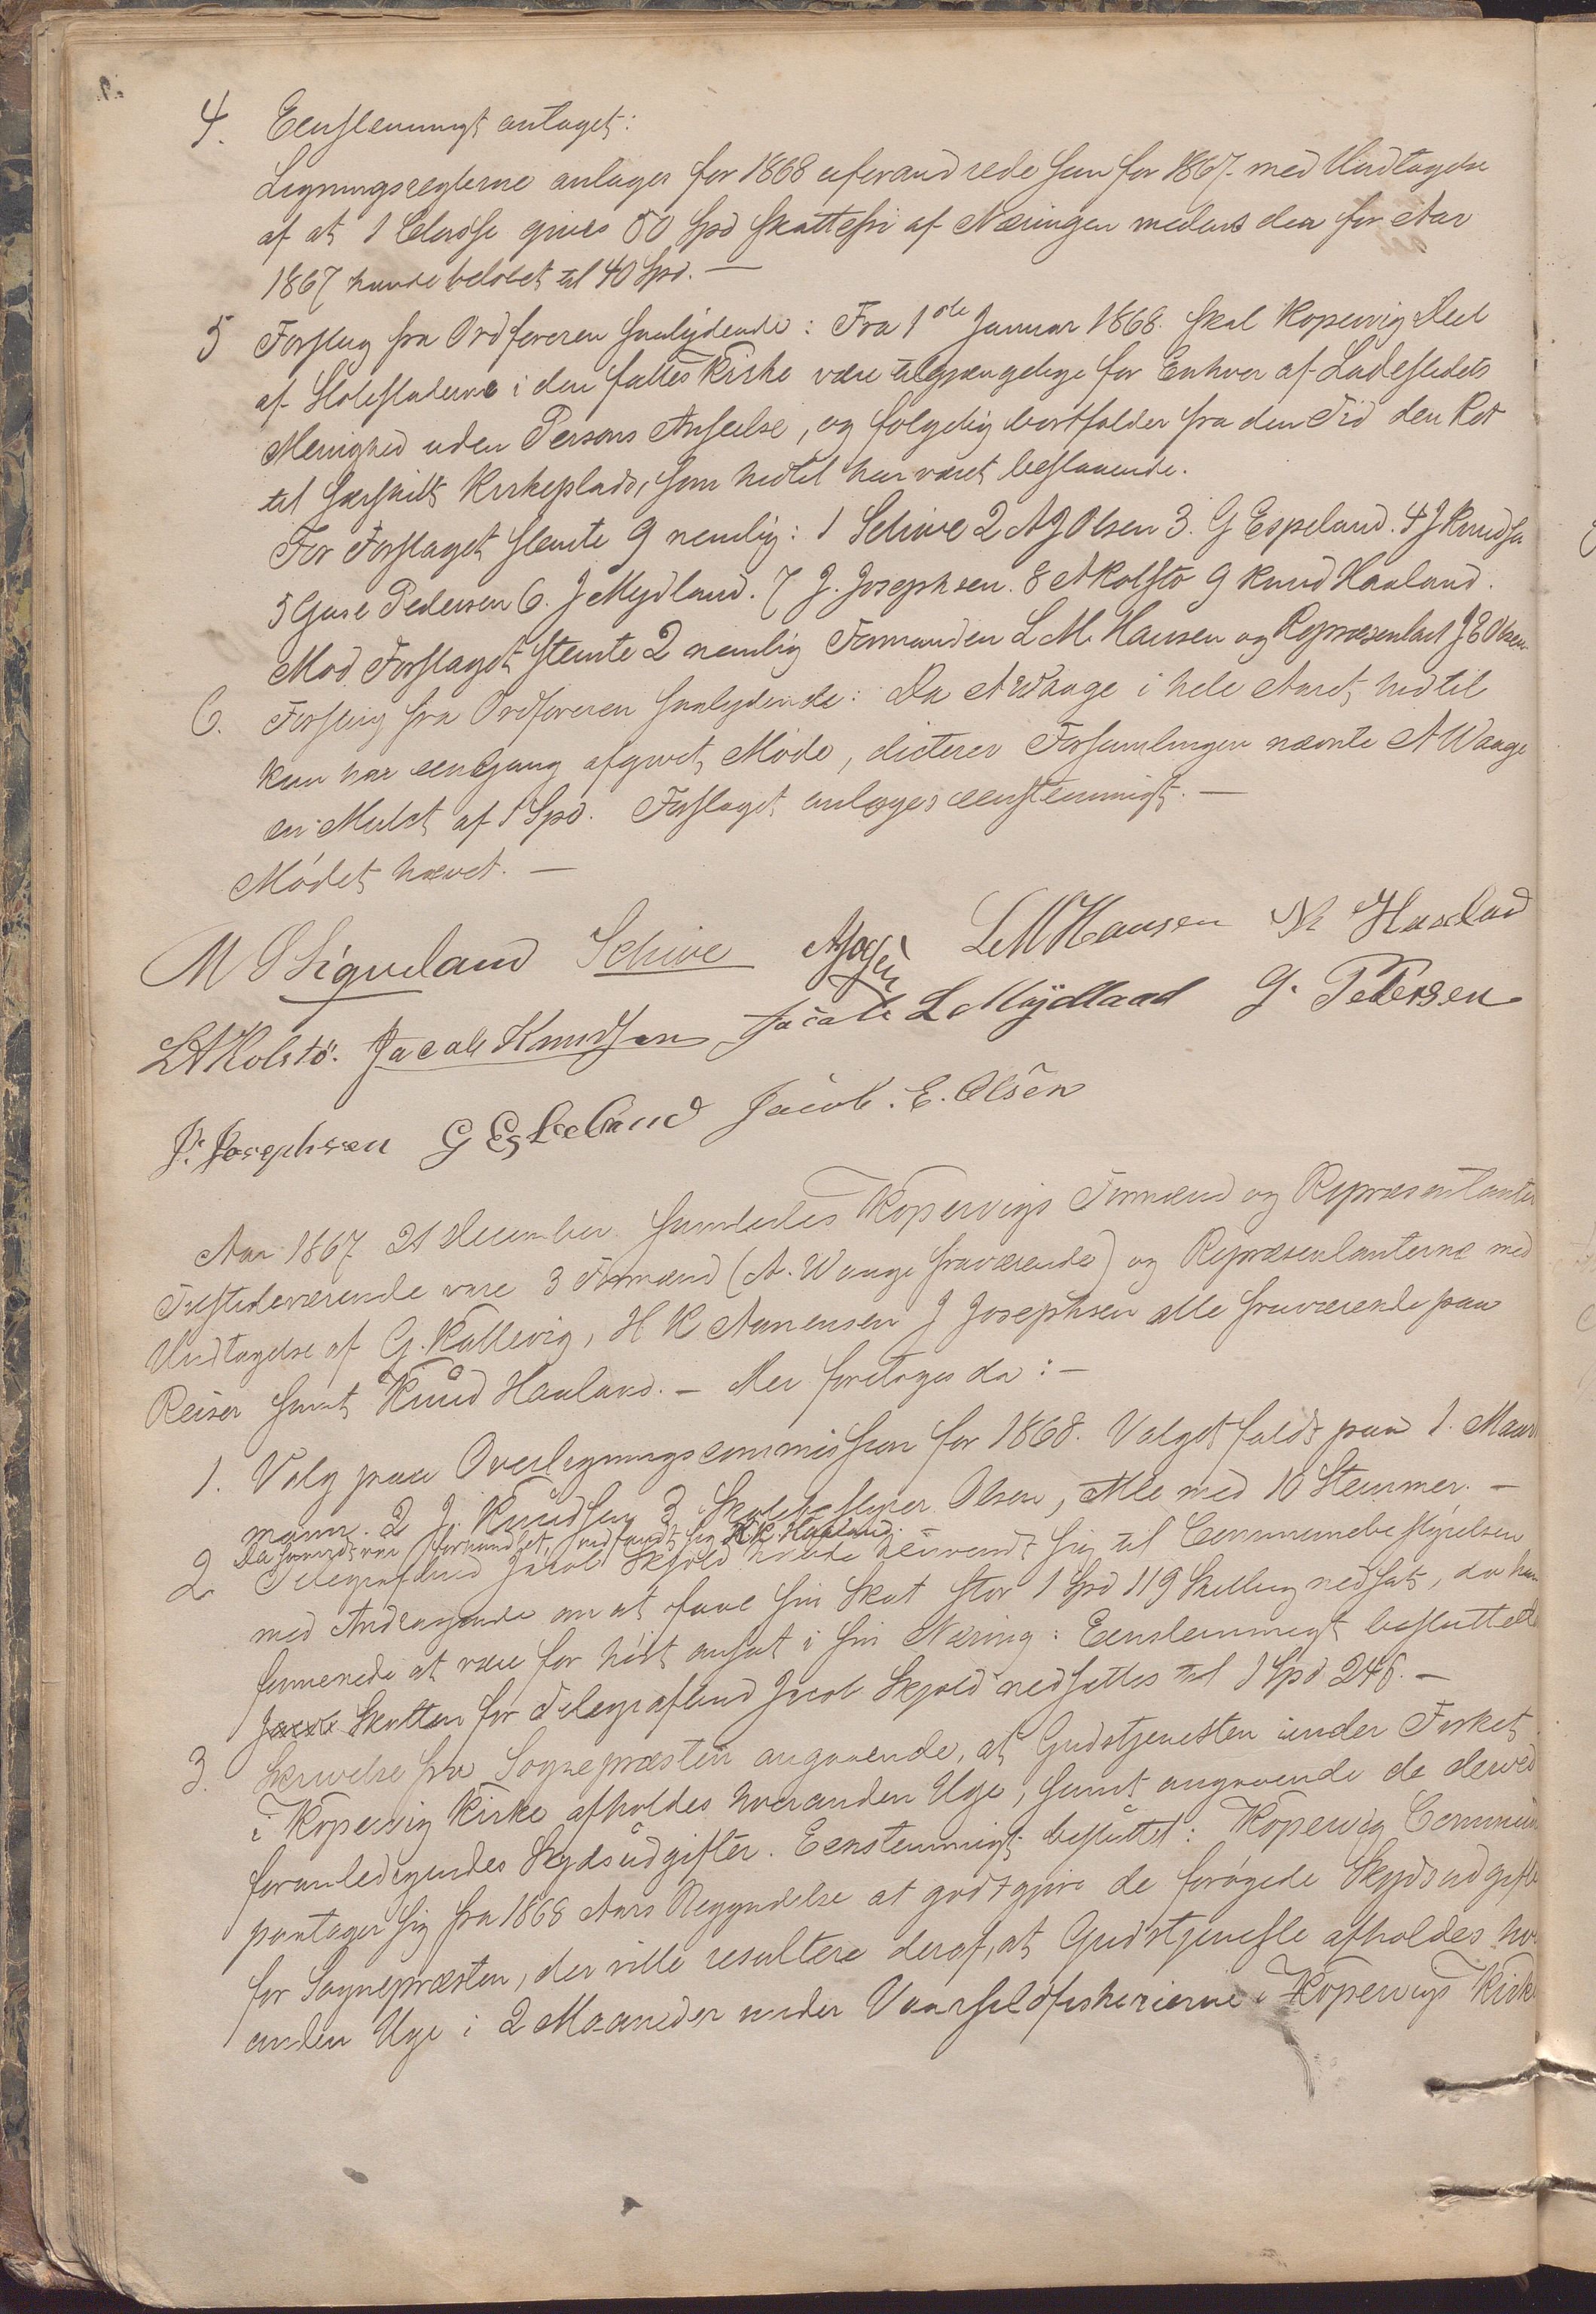 4. Eenstemmigt antaget:
Ligningsreglerne antages for 1868 uforandrede som for 1867 med Undtagelse
af at 1 Classe gives 50 Spd skattefri af Næringen medens den for Aar
1867 havde beløbet til 40 Spd. —
5 Forslag fra Ordføreren saalydende: Fra 1ste Januar 1868 skal Kopervig Deel
af Stolestaderne i den fælles Kirke være tilgjængelige for Enhver af Ladestedets
Menighed uden Persons Anseelse, og følgelig bortfalder fra den Tid den Ret
til særskilt Kirkeplads, som hidtil har været bestaaende.
For Forslaget stemte 9 nemlig: 1 Schive 2 A J Olsen 3. G Espeland. 4 J Knudsen
5 Guse Pedersen 6. J Mydland. 7 J. Josephsen. 8 A Kolstø 9 Knud Haaland.
Mod Forslaget stemte 2 nemlig Formanden L M. Hansen og Repræsentant J E Olsen.
6. Forslag fra Ordføreren saalydende: Da A Waage i hele Aaret hidtil
kun har eengang afgivet Møde, dicterer Forsamlingen nævnte A Waage
en Mulct af 1 Spd. Forslaget antages eenstemmigt. —
Mødet hævet. —
M S Liqueland Schive AJOlsen LMHansen K Haaland
LAKolstø. Jacob Knudsen Jacob L Mÿdland G. Petersen
J. Josephsen G Espeland Jacob. E. Olsen
Aar 1867 21 December samledes Kopervigs Formænd og Repræsentanter
Tilstedeværende vare 3 Formænd (A. Waage fraværende) og Repræsentanterne med
Undtagelse af G. Kallevig, H K Aanensen J Josephsen alle fraværende paa
Reiser samt Knud Haaland. — Der foretoges da: —
1. Valg paa Overligningscommission for 1868. Valget faldt paa 1. Maar
mann. 2 J. Knudsen 3 Skolebestyrer Olsen, Alle med 10 Stemmer. —
Da foranst. var forhandlet, indfandt sig K. Haaland.
2 Telegrafbud Jacob Skjold havde henvendt sig til Communebestyrelsen
med Andragende om at faae sin Skat stor 1 Spd 119 Skilling nedsat, da han
formenede at være for høit ansat i sin Næring: Eenstemmigt besluttedes
Jacob Skatten for Telegrafbud Jacob Skjold nedsættes til 1 Spd 24 ß. —
3. Skrivelse fra Sognepræsten angaaende, at Gudstjenesten under Fisket
i Kopervig Kirke afholdes hveranden Uge, samt angaaende de derved
foranledigendes Skydsudgifter. Eenstemmigt besluttet: Kopervig Commune
paatager sig fra 1868 Aars Begyndelse at godtgjøre de forøgede Skydsudgifter
for Sognepræsten, der ville resultere deraf, at Gudstjeneste afholdes hver
anden Uge i 2 Maaneder under Vaarsildfiskerierne i Kopervigs Kirke